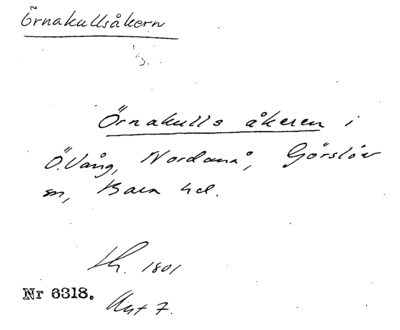 Örnakullsåkern
Örnakulls åkeren i
Ö. Vång, Nordanå, Görslöv
sn, Bara hd.
1801
Nr 6318.
Akt 7.